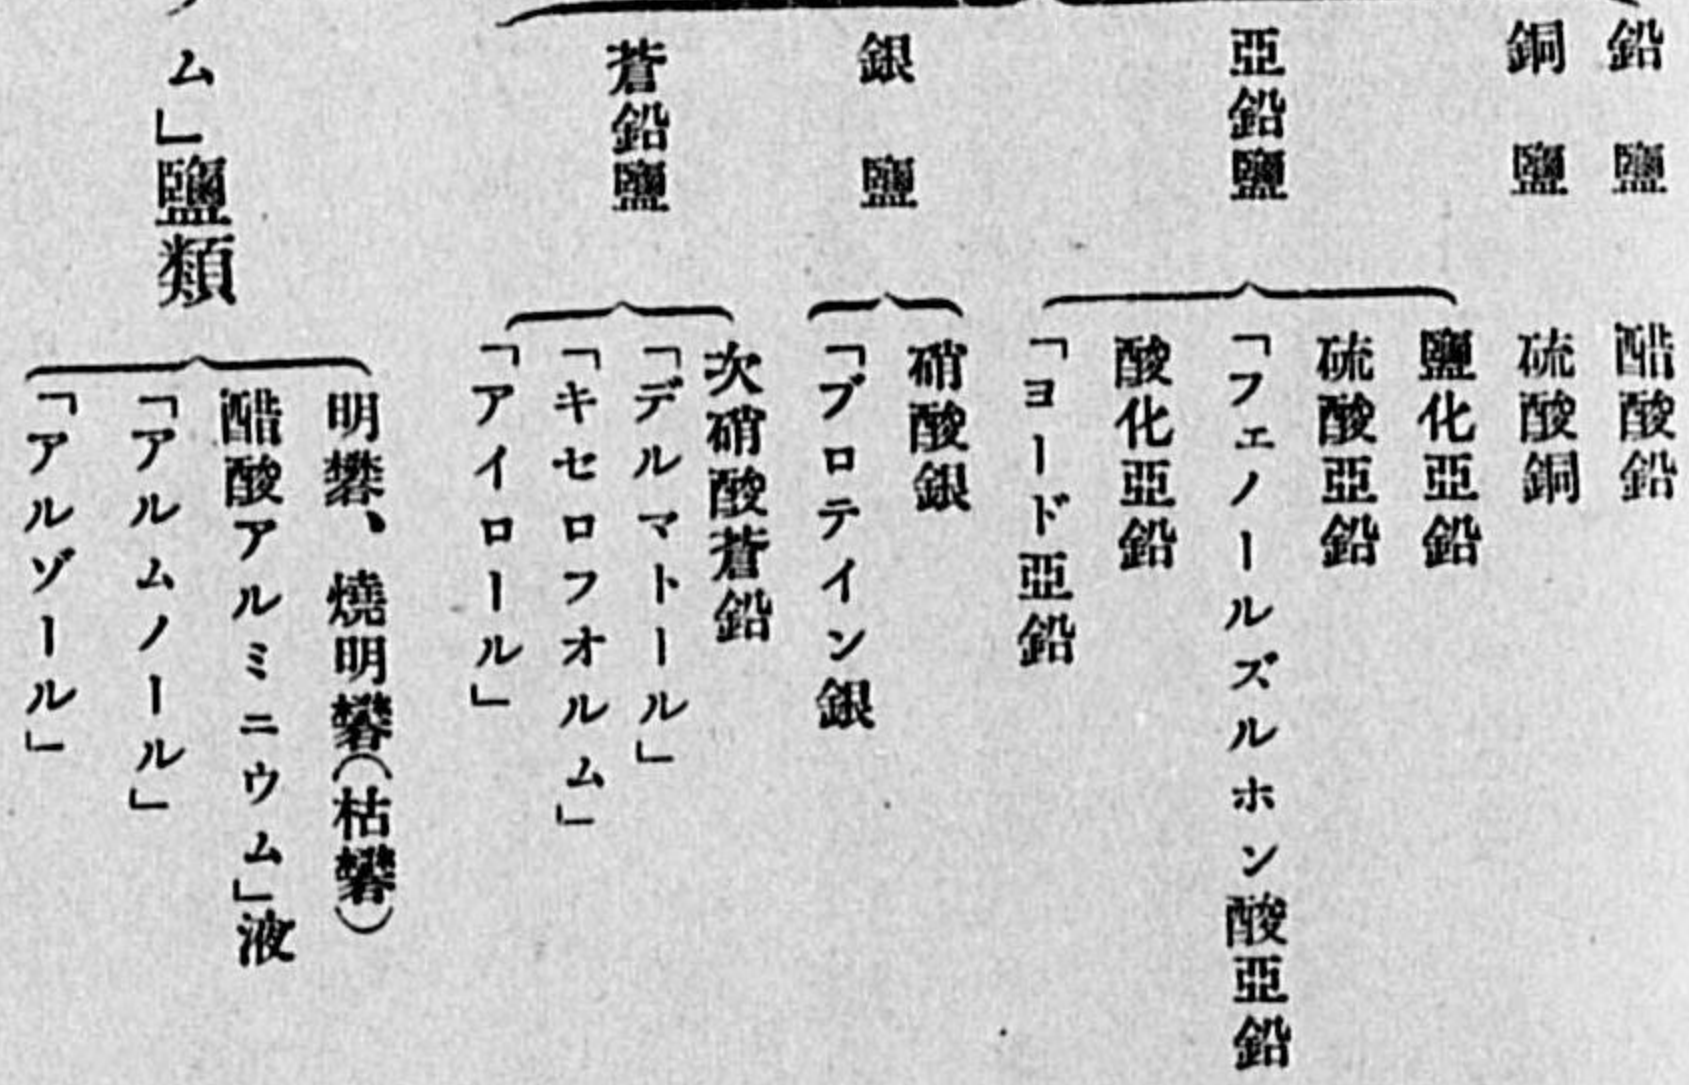 鉛鹽
醋酸鉛
銅鹽
硫酸銅
亞鉛鹽
鹽化亞鉛
硫酸亞鉛
「フェノールズルホン酸亞鉛
酸化亞鉛
「ヨード亞鉛
銀鹽
硝酸銀
「プロテイン銀
蒼鉛鹽
次硝酸蒼鉛
「デルマトール」
「キセロフオルム」
「アイロール」
ム」鹽類
明礬、燒明礬(枯礬)
醋酸アルミニウム」液
「アルムノール」
「アルゾール」